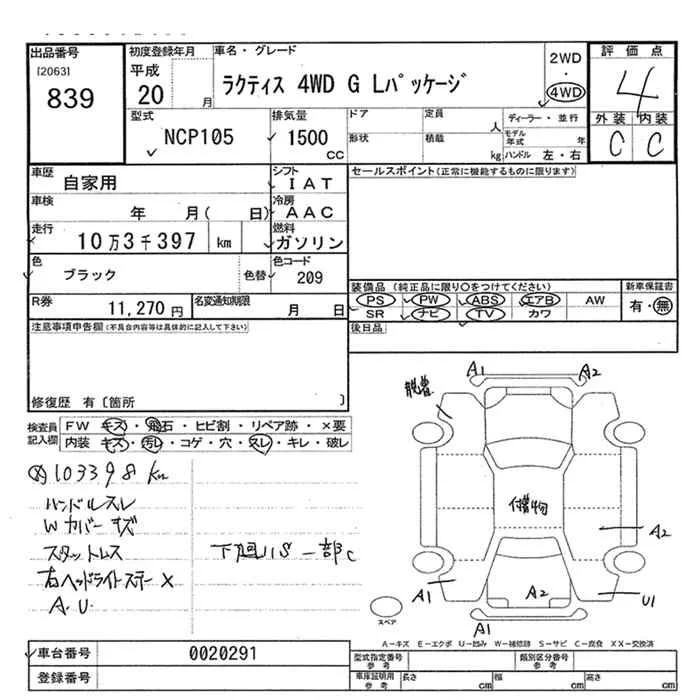 出品番号
[2063]
839
初度登録年月
平成
20 月
車名・グレード
ラクティス 4WD G Lパッケージ
2WD
・
4WD
評価点
4
外装 内装
C C
型式
NCP105
排気量
1500
CC
ドア
形状
定員
人
積載
kg
ディーラー・並行
モデル年式 年
ハンドル 左・右
車歴
自家用
シフト
IAT
車検
年 月( 日)
冷房
AAC
走行
10万3千397 km
燃料
ガソリン
色
ブラック
色替
色コード
209
R券
11,270 円
名変通知期限
月 日
セールスポイント(正常に機能するものに限ります)
装備品(純正品に限り○をつけてください)
PS PW ABS エアB AW
SR ナビ TV カワ
新車保証書
有・無
後日品
注意事項申告欄(不具合内容等は具体的に記入して下さい)
修復歴 有〔箇所 〕
検査員記入欄
FW キズ・飛石・ヒビ割・リペア跡・×要
内装 キズ・汚レ・コゲ・穴・スレ・キレ・破レ
103398 km
ハンドルスレ
Wカバーキズ
スタットレス
右ヘッドライトステー×
A.U.
下廻りS一部C
A1 A2
付着物
A2
A1 A2 U1
A1
スペア
A−キズ E−エクボ U−凹み W−補修跡 S−サビ C−腐食 XX−交換済
車台番号
0020291
登録番号
型式指定番号
参考
類別区分番号
参考
車庫証明用
参考
長さ cm
幅 cm
高さ cm